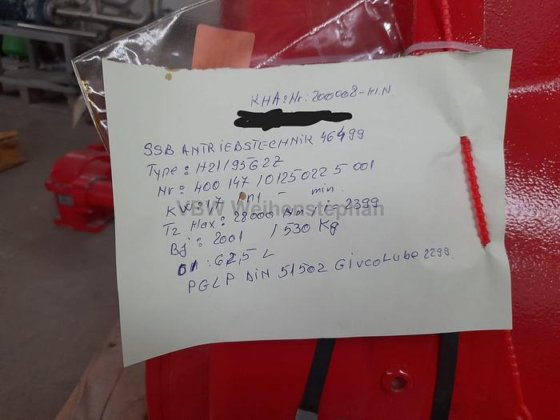 KHA:Nr: 200008-H.N
SSB ANTRIEBSTECHNIK 46499
Type: H21/95G2Z
Nr: 400 147 / 0125022 5 001
KW: 17 n1 - min
T2 Max: 28000 Nm / i- 2399
Bj: 2001 / 530 Kg
Öl: 62,5 L
PGLP DIN 51502 GlycoLube 2299
VBW Weihenstephan